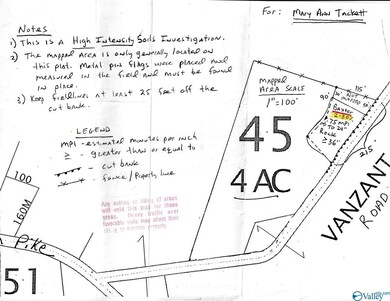 For: Mary Ann Tackett
Notes
1) This is a High Intensity Soils Investigation.
2) The mapped area is only generally located on
this plot. Metal pin flags were placed and
measured in the field and must be found
in place.
3) Keep fieldlines at least 25 feet off the
cut bank.
LEGEND
MPI - estimated minutes per inch
≥ - greater than or equal to
- cut bank
- fence/Property line
MAPPED
AREA SCALE
1"=100'
90'
115'
NOT
Baxter
75 MPI
to 24"
Rock
≥36"
215
45
4 AC
VANZANT
ROAD
100
160M
Pike
51
Valley